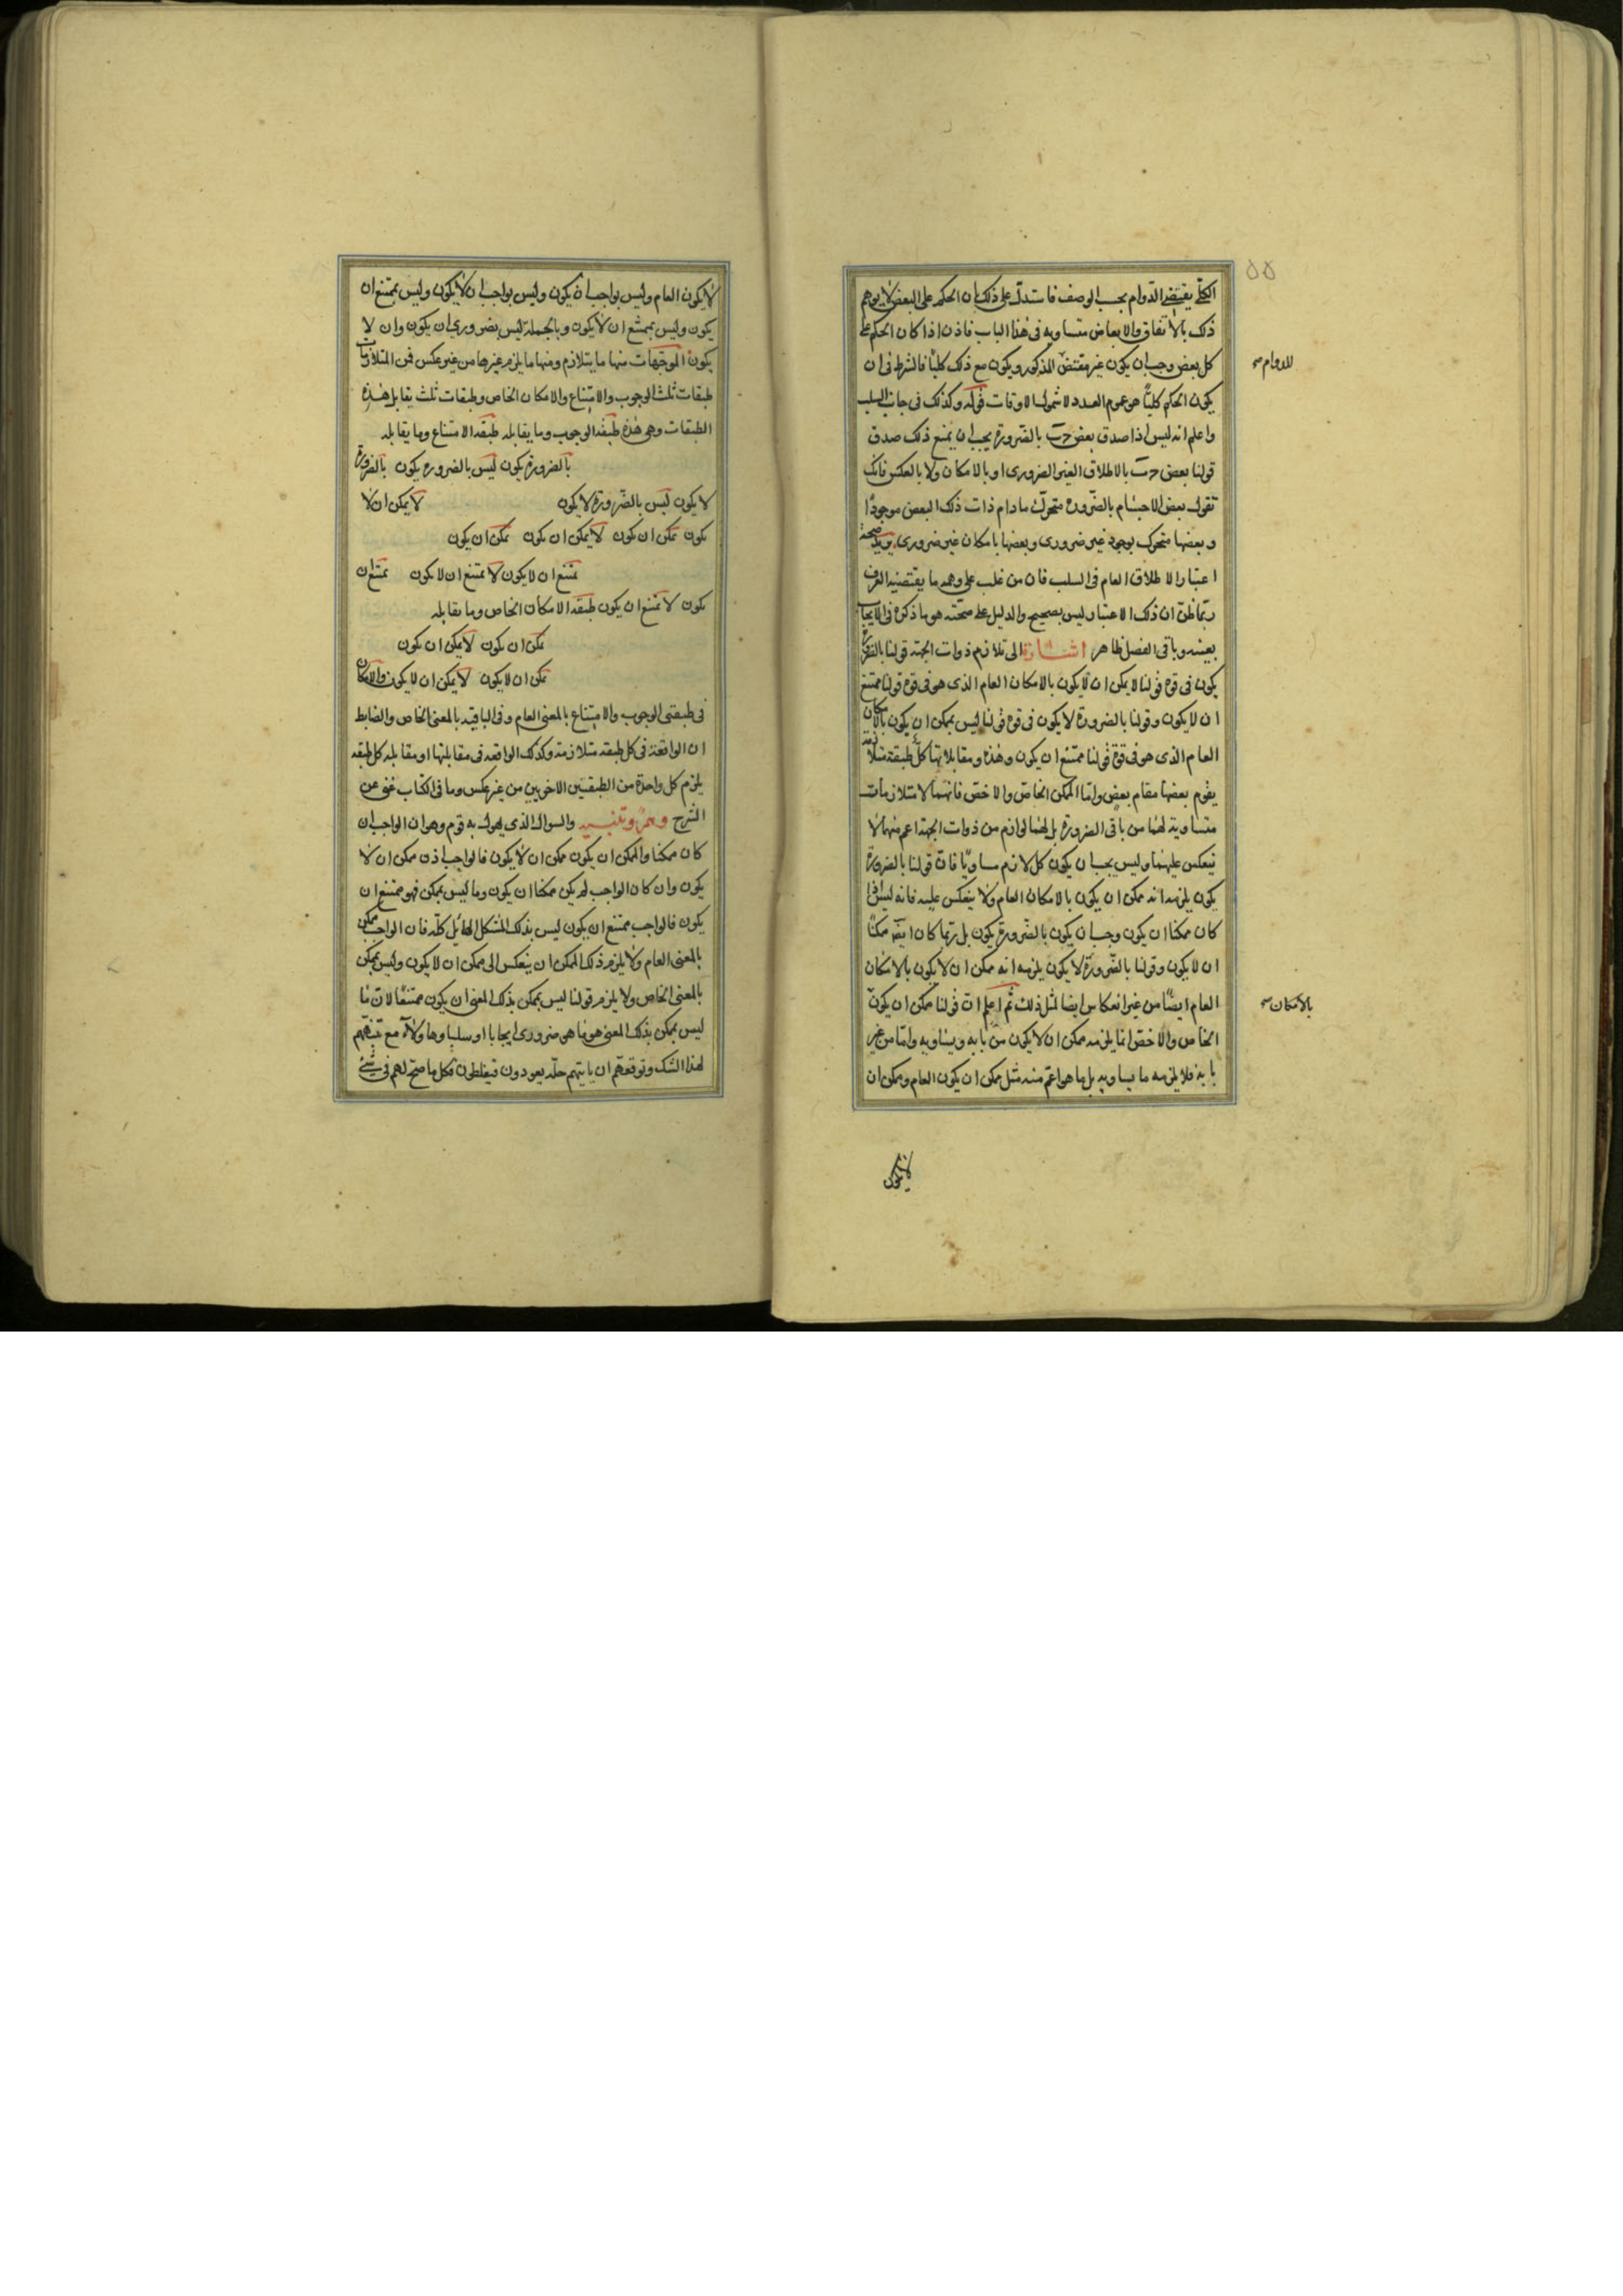 الكلى يقتضى الدوام بحسب الوصف فاستدل على ذلك بان الحكم على البعض لا يوهم
ذلك بالاتفاق والابعاض متساوية فى هذا الباب فاذن اذا كان الحكم على
كل بعض وجب ان يكون غير مقتض المذكور ويكون مع ذلك كليا فالشرط فى ان
للدوام صح
يكون الحكم كليا هو عموم العدد لا شمول الاوقات قوله وكذلك فى جانب السلب
واعلم انه ليس اذا صدق بعض ج ب بالضرورة يجب ان يمنع ذلك صدق
قولنا بعض ج ب بالاطلاق الغير الضرورى او بالامكان ولا بالعكس فانك
تقول بعض الاجسام بالضرورة متحرك مادام ذات ذلك البعض موجودا
وبعضها متحرك بوجود غير ضرورى وبعضها بامكان غير ضرورى يريد صحة
اعتبار الاطلاق العام فى السلب فان من غلب على وهمه ما يقتضيه العرف
ربما ظن ان ذلك الاعتبار ليس بصحيح والدليل على صحته هو ما ذكره فى الايجاب
بعينه وباقى الفصل ظاهر اشارة الى تلازم ذوات الجهة قولنا بالضرورة
يكون فى قوة قولنا لا يمكن ان لا يكون بالامكان العام الذى هو فى قوة قولنا ممتنع
ان لا يكون وقولنا بالضرورة لا يكون فى قوة قولنا ليس يمكن ان يكون بالامكان
العام الذى هو فى قوة قولنا ممتنع ان يكون وهذه ومقابلاتها كل طبقة متلازمة
يقوم بعضها مقام بعض واما الممكن الخاص والاخص فانهما لا متلازمات
متساوية لهما من باقى الضرورة بل لهما لوازم من ذوات الجهة اعم منهما لا
تنعكس عليهما وليس يجب ان يكون كل لازم مساويا فان قولنا بالضرورة
يكون يلزمه انه ممكن ان يكون بالامكان العام ولا ينعكس عليه فانه ليس اذا
كان ممكنا ان يكون وجب ان يكون بالضرورة يكون بل ربما كان ايضا ممكنا
ان لا يكون وقولنا بالضرورة لا يكون يلزمه انه ممكن ان لا يكون بالامكان
العام ايضا من غير انعكاس ايضا لمثل ذلك ثم اعلم ان قولنا ممكن ان يكون
بالامكان صح
الخاص والاخص انما يلزمه ممكن ان لا يكون من بابه ويساويه واما من غير
بابه فلا يلزمه ما يساويه بل ما هو اعم منه مثل ممكن ان يكون العام وممكن ان
لا يكون
لا يكون العام وليس بواجب ان يكون وليس بواجب ان لا يكون وليس بممتنع ان
يكون وليس بممتنع ان لا يكون وبالجملة ليس بضرورى ان يكون وان لا
يكون الموجهات منها ما يتلازم ومنها ما يلزم غيرها من غير عكس فمن المتلازمات
طبقات ثلث الوجوب والامتناع والامكان الخاص وطبقات ثلث يقابل هذه
الطبقات وهى هذه طبقة الوجوب وما يقابله طبقة الامتناع وما يقابله
بالضرورة يكون ليس بالضرورة يكون بالضرورة
لا يكون ليس بالضرورة لا يكون لا يمكن ان لا
يكون يمكن ان لا يكون لا يمكن ان يكون يمكن ان يكون
يمتنع ان لا يكون لا يمتنع ان لا يكون يمتنع ان
يكون لا يمتنع ان يكون طبقة الامكان الخاص وما يقابله
يمكن ان يكون لا يمكن ان يكون
يمكن ان لا يكون لا يمكن ان لا يكون والامكان
فى طبقتى الوجوب والامتناع بالمعنى العام وفى الباقية بالمعنى الخاص والضابط
ان الواقعة فى كل طبقة متلازمة وكذلك الواقعة فى مقابلتها او مقابله كل طبقه
يلزم كل واحدة من الطبقتين الاخريين من غير عكس وما فى الكتاب غنى عن
الشرح وهم وتنبيه والسوال الذى يهول به قوم وهو ان الواجب ان
كان ممكنا والممكن ان يكون ممكن ان لا يكون فالواجب اذن ممكن ان لا
يكون وان كان الواجب لم يكن ممكنا ان يكون وما ليس بممكن فهو ممتنع ان
يكون فالواجب ممتنع ان يكون ليس بذلك المشكل الهائل كله فان الواجب ممكن
بالمعنى العام ولا يلزم ذلك الممكن ان ينعكس الى ممكن ان لا يكون وليس بممكن
بالمعنى الخاص ولا يلزم قولنا ليس بممكن بذلك المعنى ان يكون ممتنعا لان ما
ليس بممكن بذلك المعنى هو ما هو ضرورى ايجابا او سلبا وهاولاء مع تنبههم
لهذا الشك وتوقعهم ان ياتيهم حله يعودون فيغلطون فكل ما صح لهم فى شئ